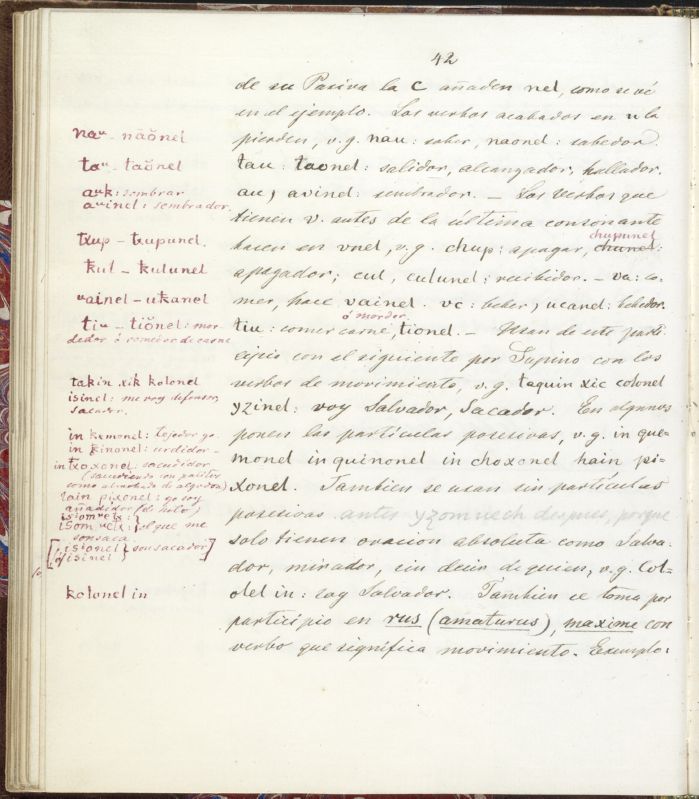 42
de su Pasiva la c añaden nel, como se vé
en el ejemplo. Los verbos acabados en u la
pierden, v.g. nau: saber, naonel: sabedor.
tau: taonel: salidor, alcanzador, hallador.
au, avinel: sembrador. – Los verbos que
tienen v. antes de la última consonante
chupunel
hacen en vnel, v.g. chup: apagar, chunel:
apagador; cul, culunel: recibidor. – va: co-
mer, hace vainel. vc: beber, ucanel: bebedor.
ó morder
tiu: comer carne, tionel. – Usan de este parti-
cipio con el siguiente por Supino con los
verbos de movimiento, v.g. taquin xic colonel
yzinel: voy Salvador, Sacador. En algunos
ponen las partículas posesivas, v.g. in que-
monel in quinonel in choxonel hain pi-
xonel. Tambien se usan sin partículas
posesivas antes yzomnech despues, porque
solo tienen oracion absoluta como Salva-
dor, mirador, sin decir de quien, v.g. Col-
olel in: soy Salvador. Tambien se toma por
participio en rus (amaturus), maxime con
verbo que significa movimiento. Exemplo:
naᵘ - näŏnel
taᵘ - taŏnel
aᵘk: sembrar
aᵘinel: sembrador.
txup – txupunel.
kul – kulunel
ᵘainel – ukanel
tiᵘ – tiŏnel: mor-
dedor ó comedor de carne
takin xik kolonel
isinel: me voy defensor,
sacador.
in kemonel: tejedor yo.
in kinonel: urdidor.
in txoxonel sacudidor
como almohada de algodon)
tain pixonel: yo soy
añudidor (de hilo)
isom ᵘetx: } el que me
sonsaca
isinel } sonsacador]
kolonel in